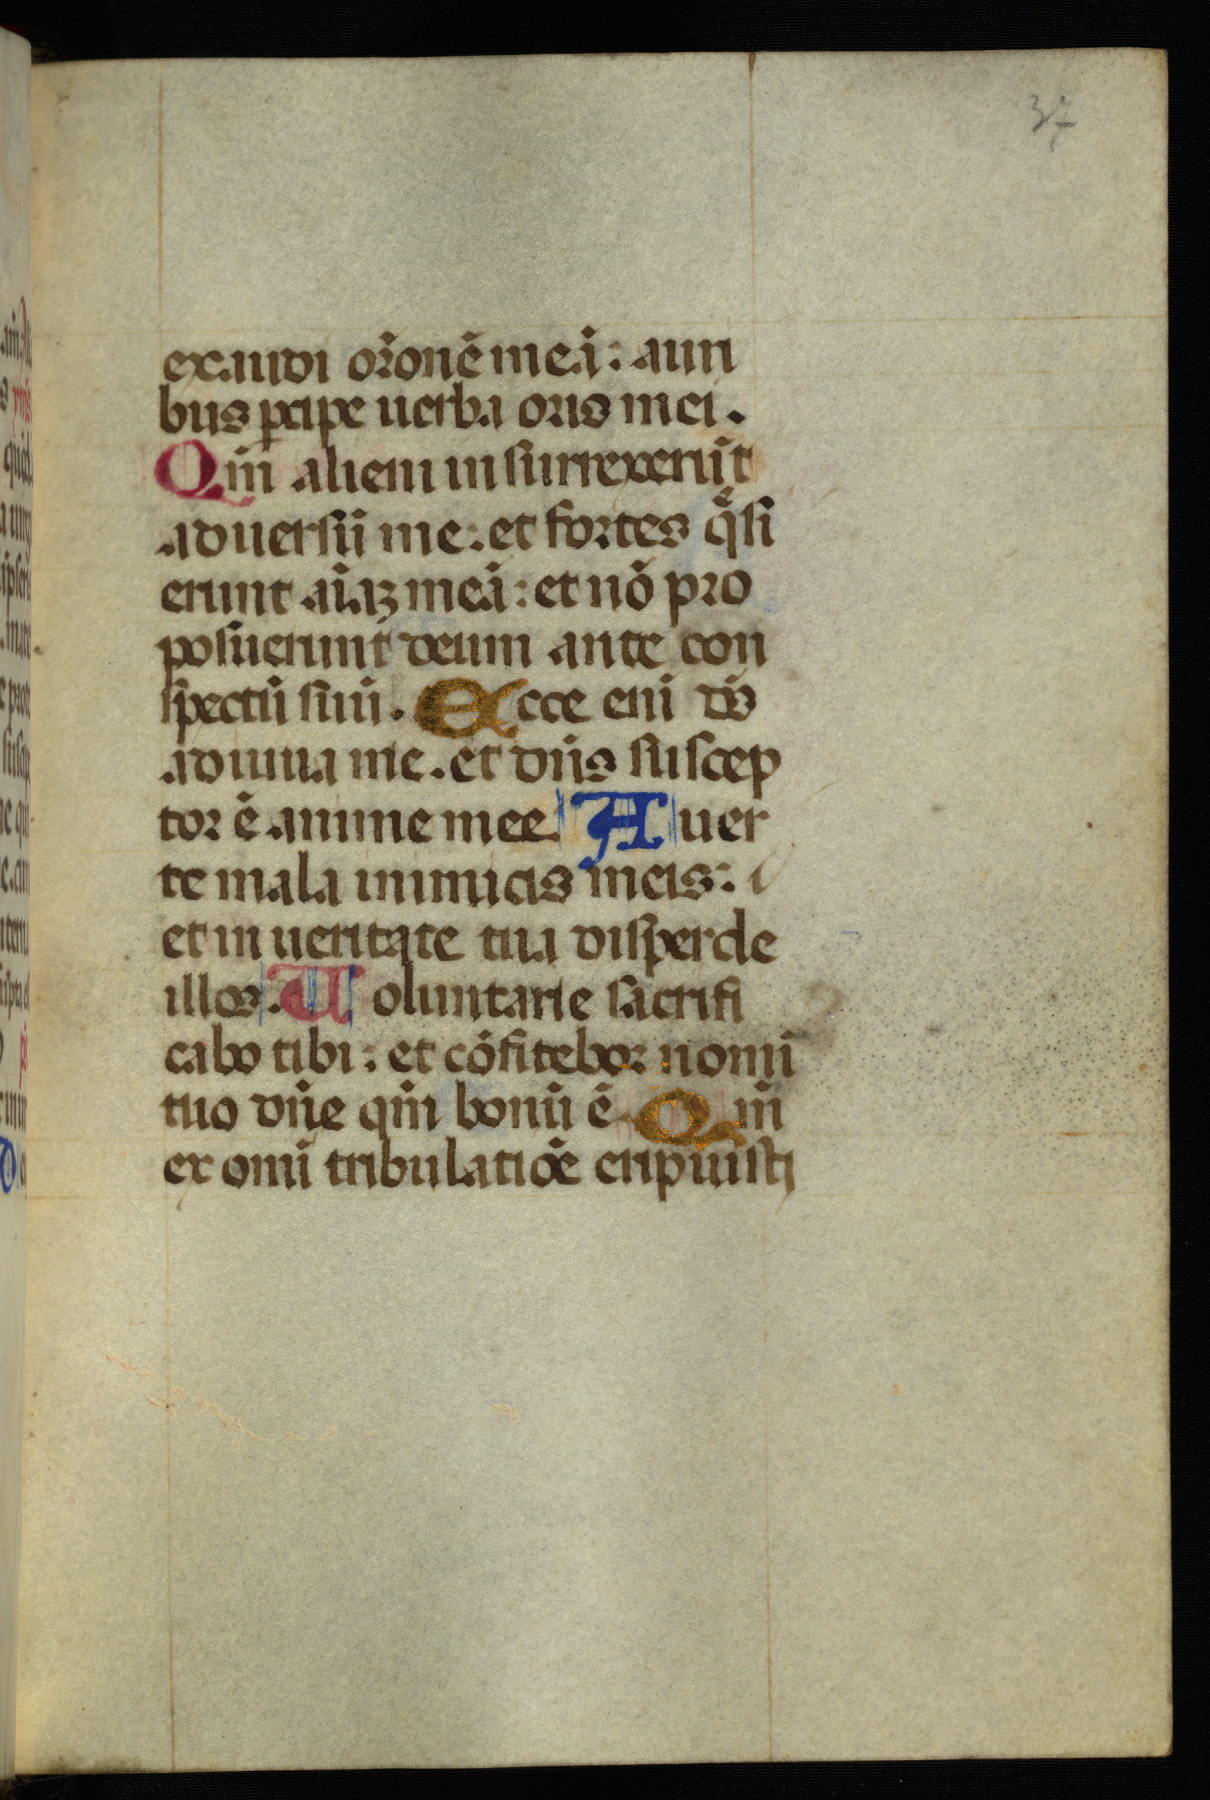 37
exaudi or̄onē meā: auri
bus ꝑcipe uerba oris mei.
Qm̄ alieni insurrexerūt
aduersū me: et fortes q̄si
erunt aīaꝫ meā: et nō pro
posuerunt deum ante con
spectū suū. Ecce enī ds̄
adiuua me. et dn̄s suscep
tor ē anime mee. Auer
te mala inimicis meis:
et in ueritate tua disperde
illos. Uoluntarie sacrifi
cabo tibi: et cōfitebor nomī
tuo dn̄e qm̄ bonū ē. Qm̄
ex omī tribulatiōe eripuisti